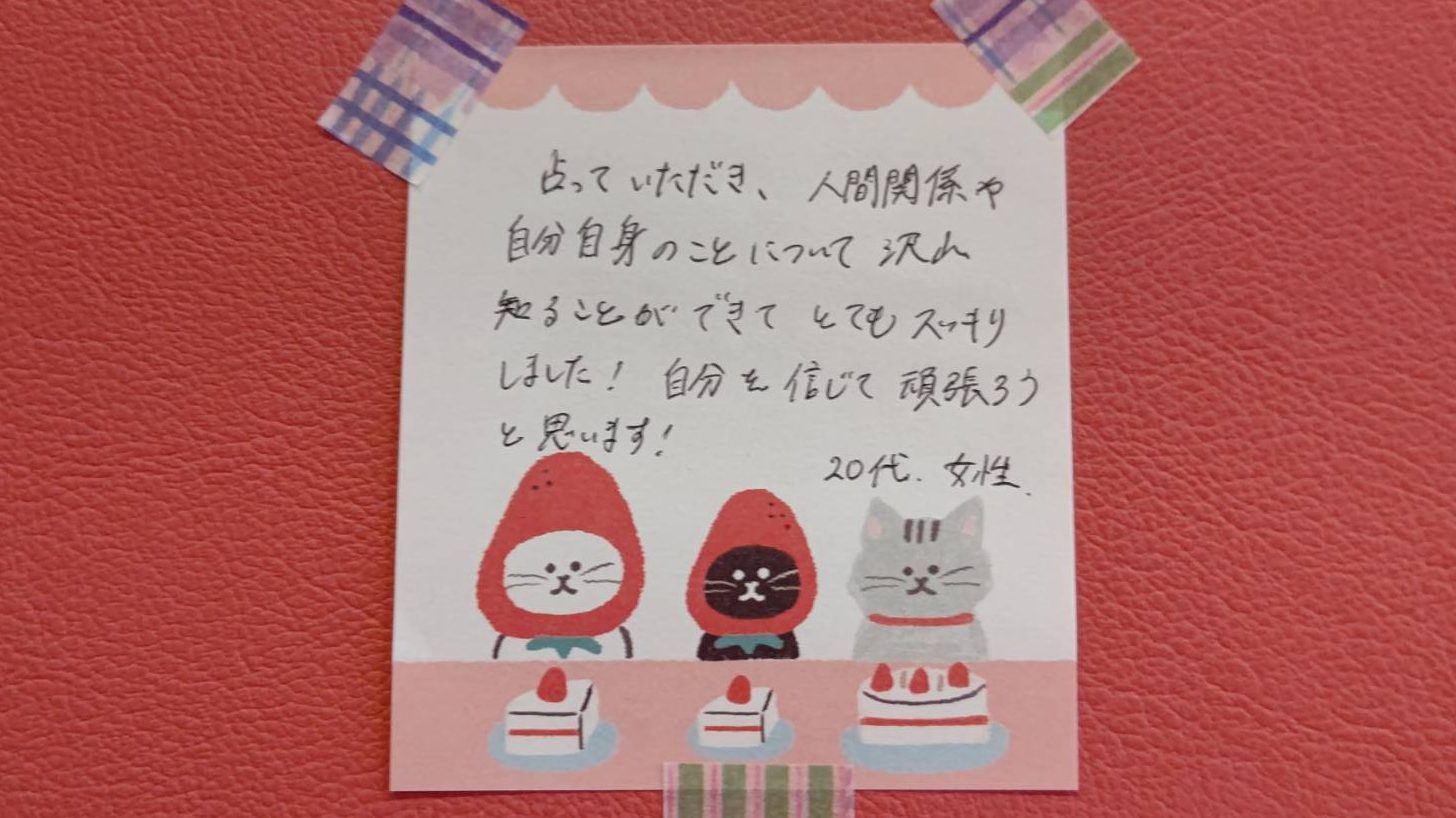 占っていただき、人間関係や
自分自身のことについて沢山
知ることができてとてもスッキリ
しました！自分を信じて頑張ろう
と思います！
20代.女性.